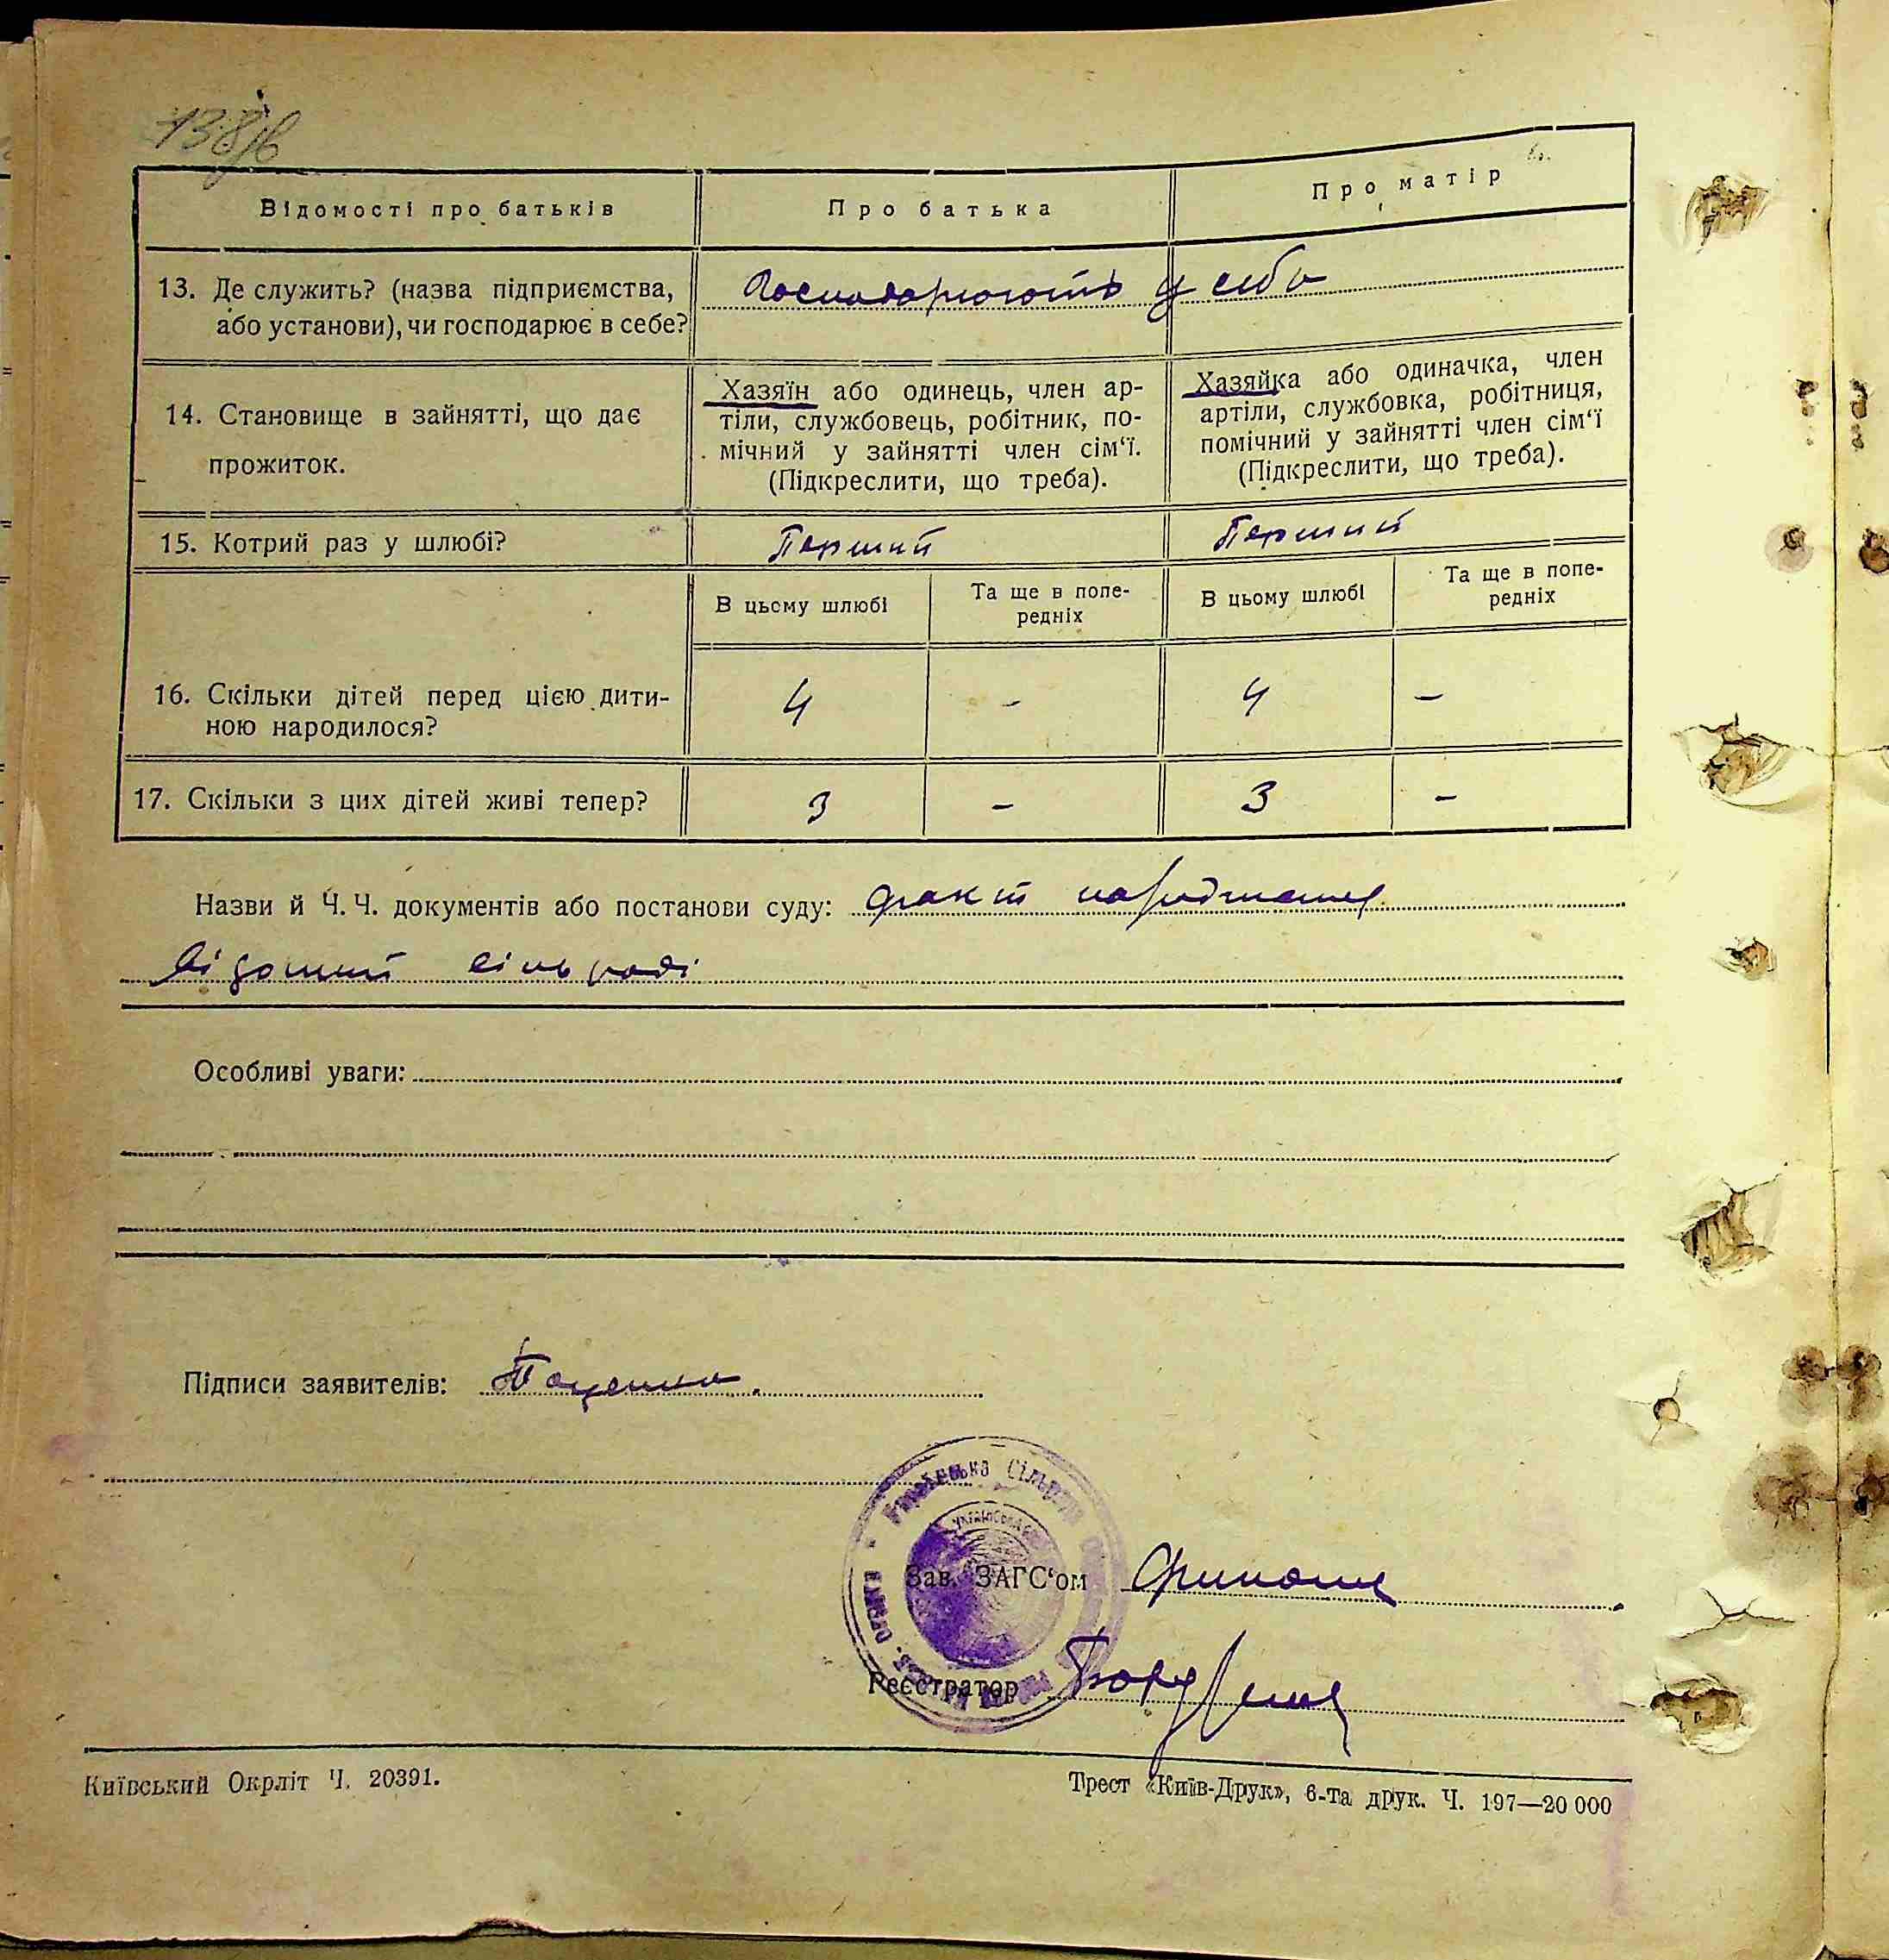 Відомості про батьків Про батька Про матір
13. Де служить? (назва підприємства, або установи), чи господарює в себе? Господарюють у себе
14. Становище в зайнятті, що дає прожиток.
Хазяїн або одинець, член ар-
тіли, службовець, робітник, по-
мічний у зайнятті член сім'ї.
(Підкреслити, що треба).
Хазяйка або одиначка, член
артіли, службовка, робітниця,
помічний у зайнятті член сім'ї
(Підкреслити, що треба).
15. Котрий раз у шлюбі? Перший Перший
В цьому шлюбі Та ще в попе-
редніх В цьому шлюбі Та ще в попе-
редніх
16. Скільки дітей перед цією дити-
ною народилося? 4 - 4 -
17. Скільки з цих дітей живі тепер? 3 - 3 -
Назви й Ч. Ч. документів або постанови суду: факт народження
відомий сільраді
Особливі уваги:
Підписи заявителів:
Зав. ЗАГС'ом
Реєстратор
Київський Окрліт Ч. 20391.
Трест «Київ-Друк», 6-та друк. Ч. 197—20 000